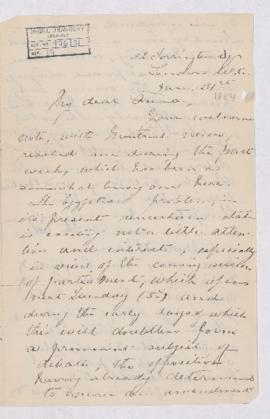 52 Torrington Sq
London W.C.
Jan. 31st
1884
My dear Friend,
Your welcome
note, with Montreal review,
reached me during the past
week, which has been a
somewhat busy one here.
The Egyptian problem, in
its present uncertain state
is exciting not a little atten-
tion and interest, especially
in view of the coming session
of Parliament, which opens
next Tuesday (5th) and
during the early days of which
this will doubtless form
a prominent subject of
debate, the opposition
having already determined
to move an amendment